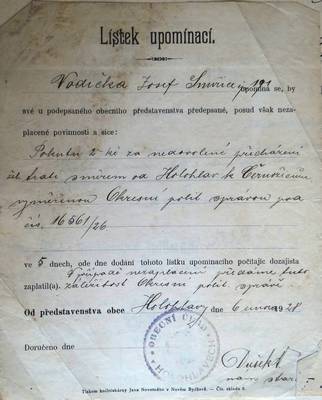 Lístek upomínací.
Vodička Josef Smiřice 191 upomíná se, by
své u podepsaného obecního představenstva předepsané, posud však neza-
placené povinnosti a sice:
Pokutu 2 kč za nedovolené přecházení
žel. trati směrem od Holohlav k Černožicům
vyměřenou Okresní polit. správou pod
čís. 16561/26.
ve 5 dnech, ode dne dodání tohoto lístku upomínacího počítajíc dozajista
V případě nezaplacení předáme tuto
zaplatil(a). záležitost Okresní polit. správě
Od představenstva obce Holohlavy dne 6 února 1928.
OBECNÍ ÚŘAD
Doručeno dne
Dušek
nám. star.
Tiskem knihtiskárny Jana Novotného v Novém Bydžově. — Čís. skladu